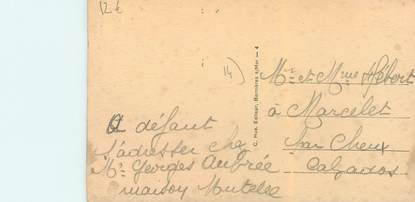 12 €
14)
C. Hue, Editeur, Bernières s/Mer — 4
Mr et Mme Hébert
à Marcelet
par Cheux
Calvados
A défaut
s'adresser chez
Mr Georges Aubrée
maison Mutelle